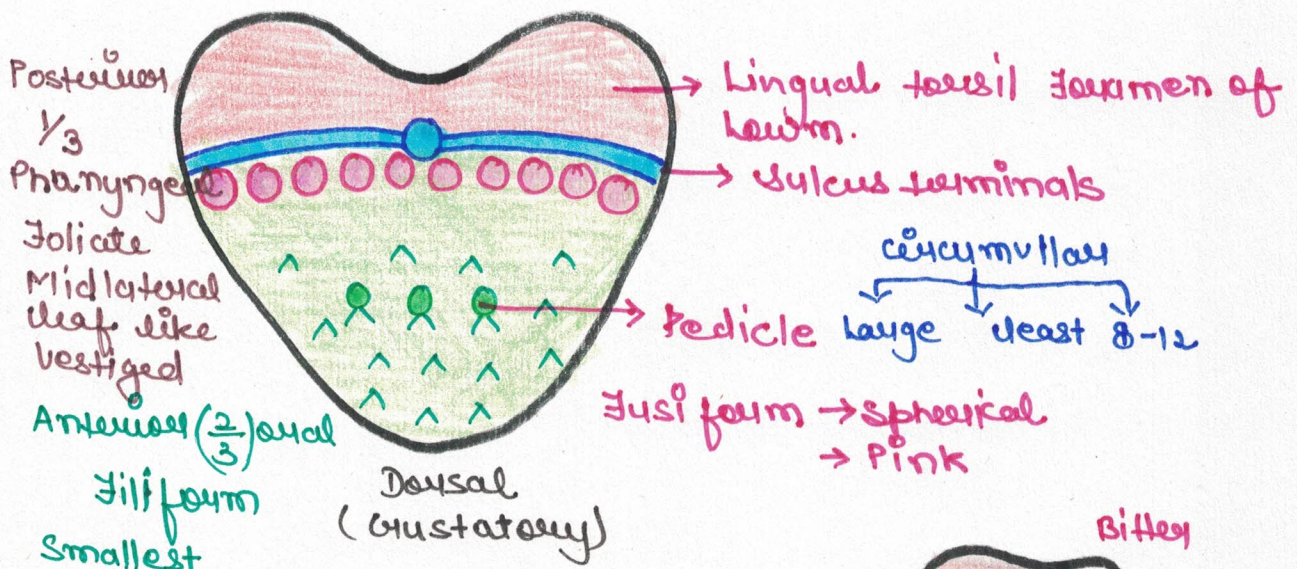 Posterior
1/3
Pharyngeal
Foliate
Midlateral
leaf like
vestiged
Anterior (2/3) oral
Filiform
Smallest
Lingual tonsil Foramen of
sulcus terminals
circumvllar
Large least 8-12
Pedicle
Fusiform → Spherical
→ Pink
Dorsal
(Gustatory)
Bitter